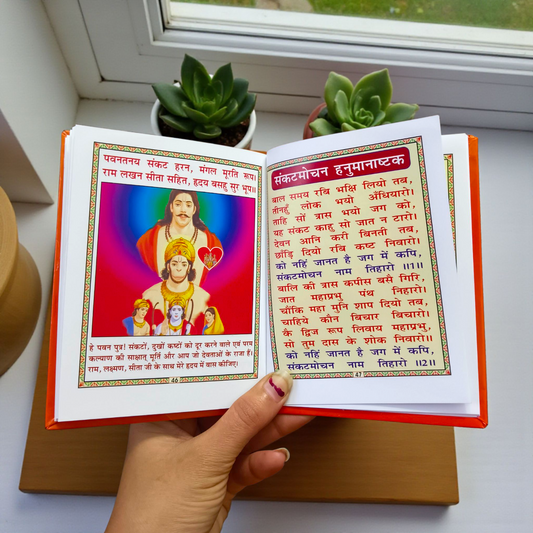 पवनतनय संकट हरन, मंगल मूरति रूप।
राम लखन सीता सहित, हृदय बसहु सुर भूप॥
हे पवन पुत्र! संकटों, दुखों कष्टों को दूर करने वाले एवं परम
कल्याण की साक्षात् मूर्ति और आप जो देवताओं के राजा हैं।
राम, लक्ष्मण, सीता जी के साथ मेरे हृदय में वास कीजिए।
46
संकटमोचन हनुमानाष्टक
बाल समय रबि भक्षि लियो तब,
तीनहुँ लोक भयो अँधियारो।
ताहि सों त्रास भयो जग को,
यह संकट काहु सो जात न टारो।
देवन आनि करी बिनती तब,
छाँड़ि दियो रबि कष्ट निवारो।
को नहिं जानत है जग में कपि,
संकटमोचन नाम तिहारो ॥1॥
बालि की त्रास कपीस बसै गिरि,
जात महाप्रभु पंथ निहारो।
चौंकि महा मुनि शाप दियो तब,
चाहिये कौन बिचार बिचारो।
कै द्विज रूप लिवाय महाप्रभु,
सो तुम दास के शोक निवारो।
को नहिं जानत है जग में कपि,
संकटमोचन नाम तिहारो ॥2॥
47